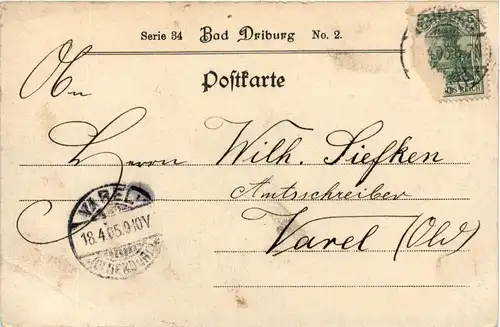 Serie 34 Bad Driburg No. 2.
Postkarte
An
Herrn Wilh. Siefken
Amtsschreiber
Varel (Old)
VAREL
18.4.05.9-10V
(OLDENBURG)
REICH